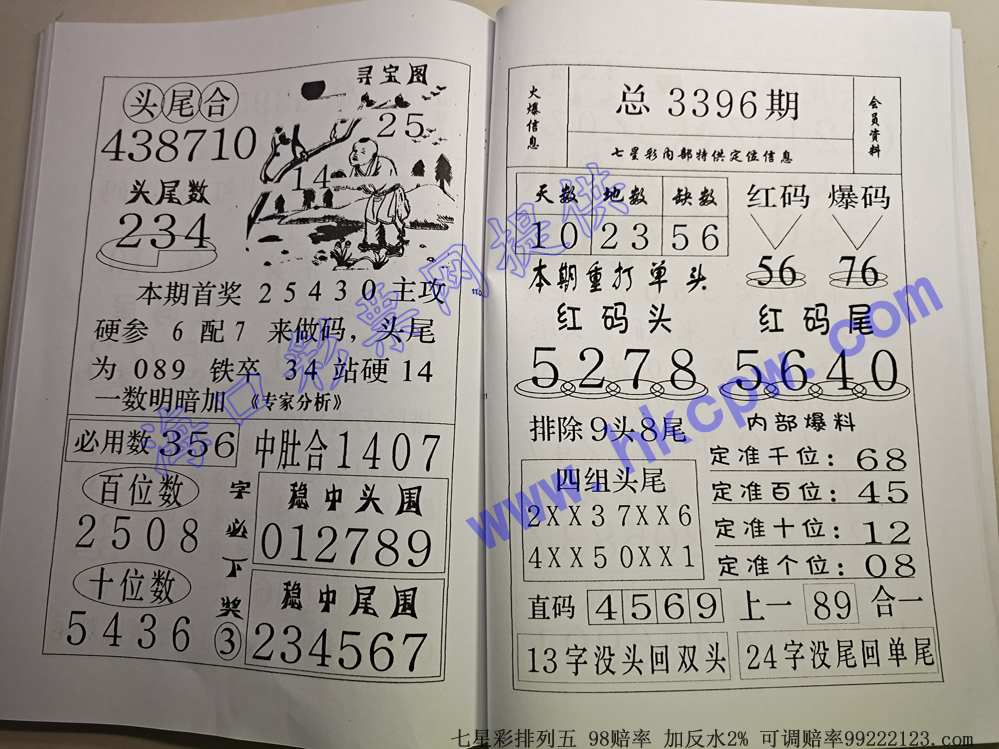 头尾合
438710
寻宝图
25
14
头尾数
234
本期首奖 25430 主攻
硬参 6 配 7 来做码，头尾
为 089 铁卒 34 站硬 14
一数明暗加 《专家分析》
必用数 356
中肚合1407
百位数
2508
十位数
5436
字必下奖③
稳中头围
012789
稳中尾围
234567
火爆信息
总 3396期
七星彩内部特供定位信息
会员资料
天数 地数 缺数
10 23 56
红码 爆码
56 76
本期重打单头
红码头
5278
红码尾
5640
排除9头8尾
内部爆料
四组头尾
2XX3 7XX6
4XX5 0XX1
定准千位：68
定准百位：45
定准十位：12
定准个位：08
直码 4569 上一 89 合一
13字没头回双头
24字没尾回单尾
海口彩票网提供
www.hkcpw.com
七星彩排列五 98赔率 加反水2% 可调赔率99222123.com